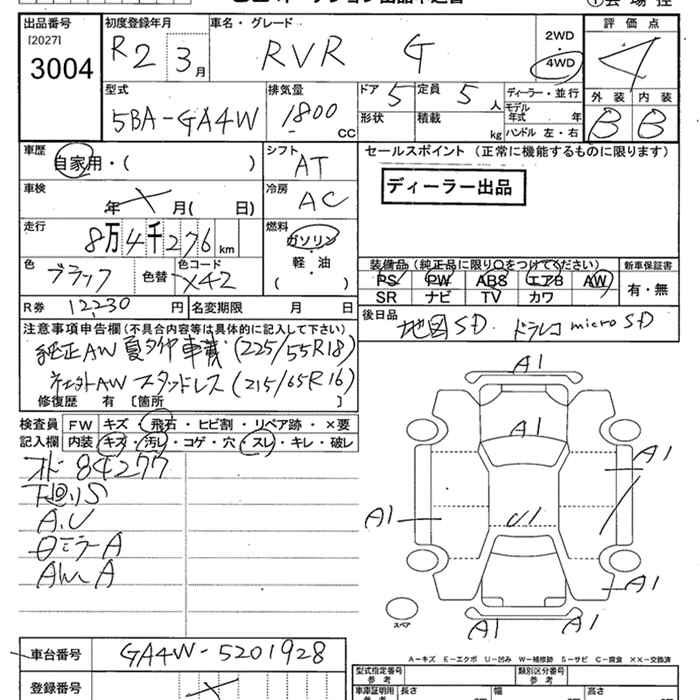 出品番号 初度登録年月 車名・グレード 2WD 評価点
[2027] 3004 R2 3月 RVR G 4WD 4
型式 排気量 ドア 5 定員 5人 ディーラー・並行 外装 内装
5BA-GA4W 1800 CC 形状 積載 kg モデル年式 年 B B
ハンドル 左・右
車歴 シフト セールスポイント (正常に機能するものに限ります)
自家用・( ) AT ディーラー出品
車検 冷房
年 月( 日) AC
走行 燃料
8万4千276km ガソリン
軽・油
( )
色 色替 色コード 装備品(純正品に限り○をつけてください) 新車保証書
ブラック X42 PS PW ABS エアB AW 有・無
SR ナビ TV カワ
R券 12,230円 名変期限 月 日 後日品
地図SD. ドラレコ microSD
注意事項申告欄(不具合内容等は具体的に記入して下さい)
純正AW 夏タイヤ 車載 (225/55R18)
社外AW スタッドレス (215/65R16)
修復歴 有 〔箇所 〕
検査員 FW キズ・飛石・ヒビ割・リペア跡・×要
記入欄 内装 キズ・汚レ・コゲ・穴・スレ・キレ・破レ
84277
下回リS
A.U
ミラーA
AW A
A1
A1
A1
A1
U1
A1
A1
A1
スペア
A-キズ E-エクボ U-凹み W-補修跡 S-サビ C-腐食 XX-交換済
車台番号 GA4W-5201928
型式指定番号 参考 類別区分番号 参考
登録番号
車庫証明用 参考 長さ 幅 高さ